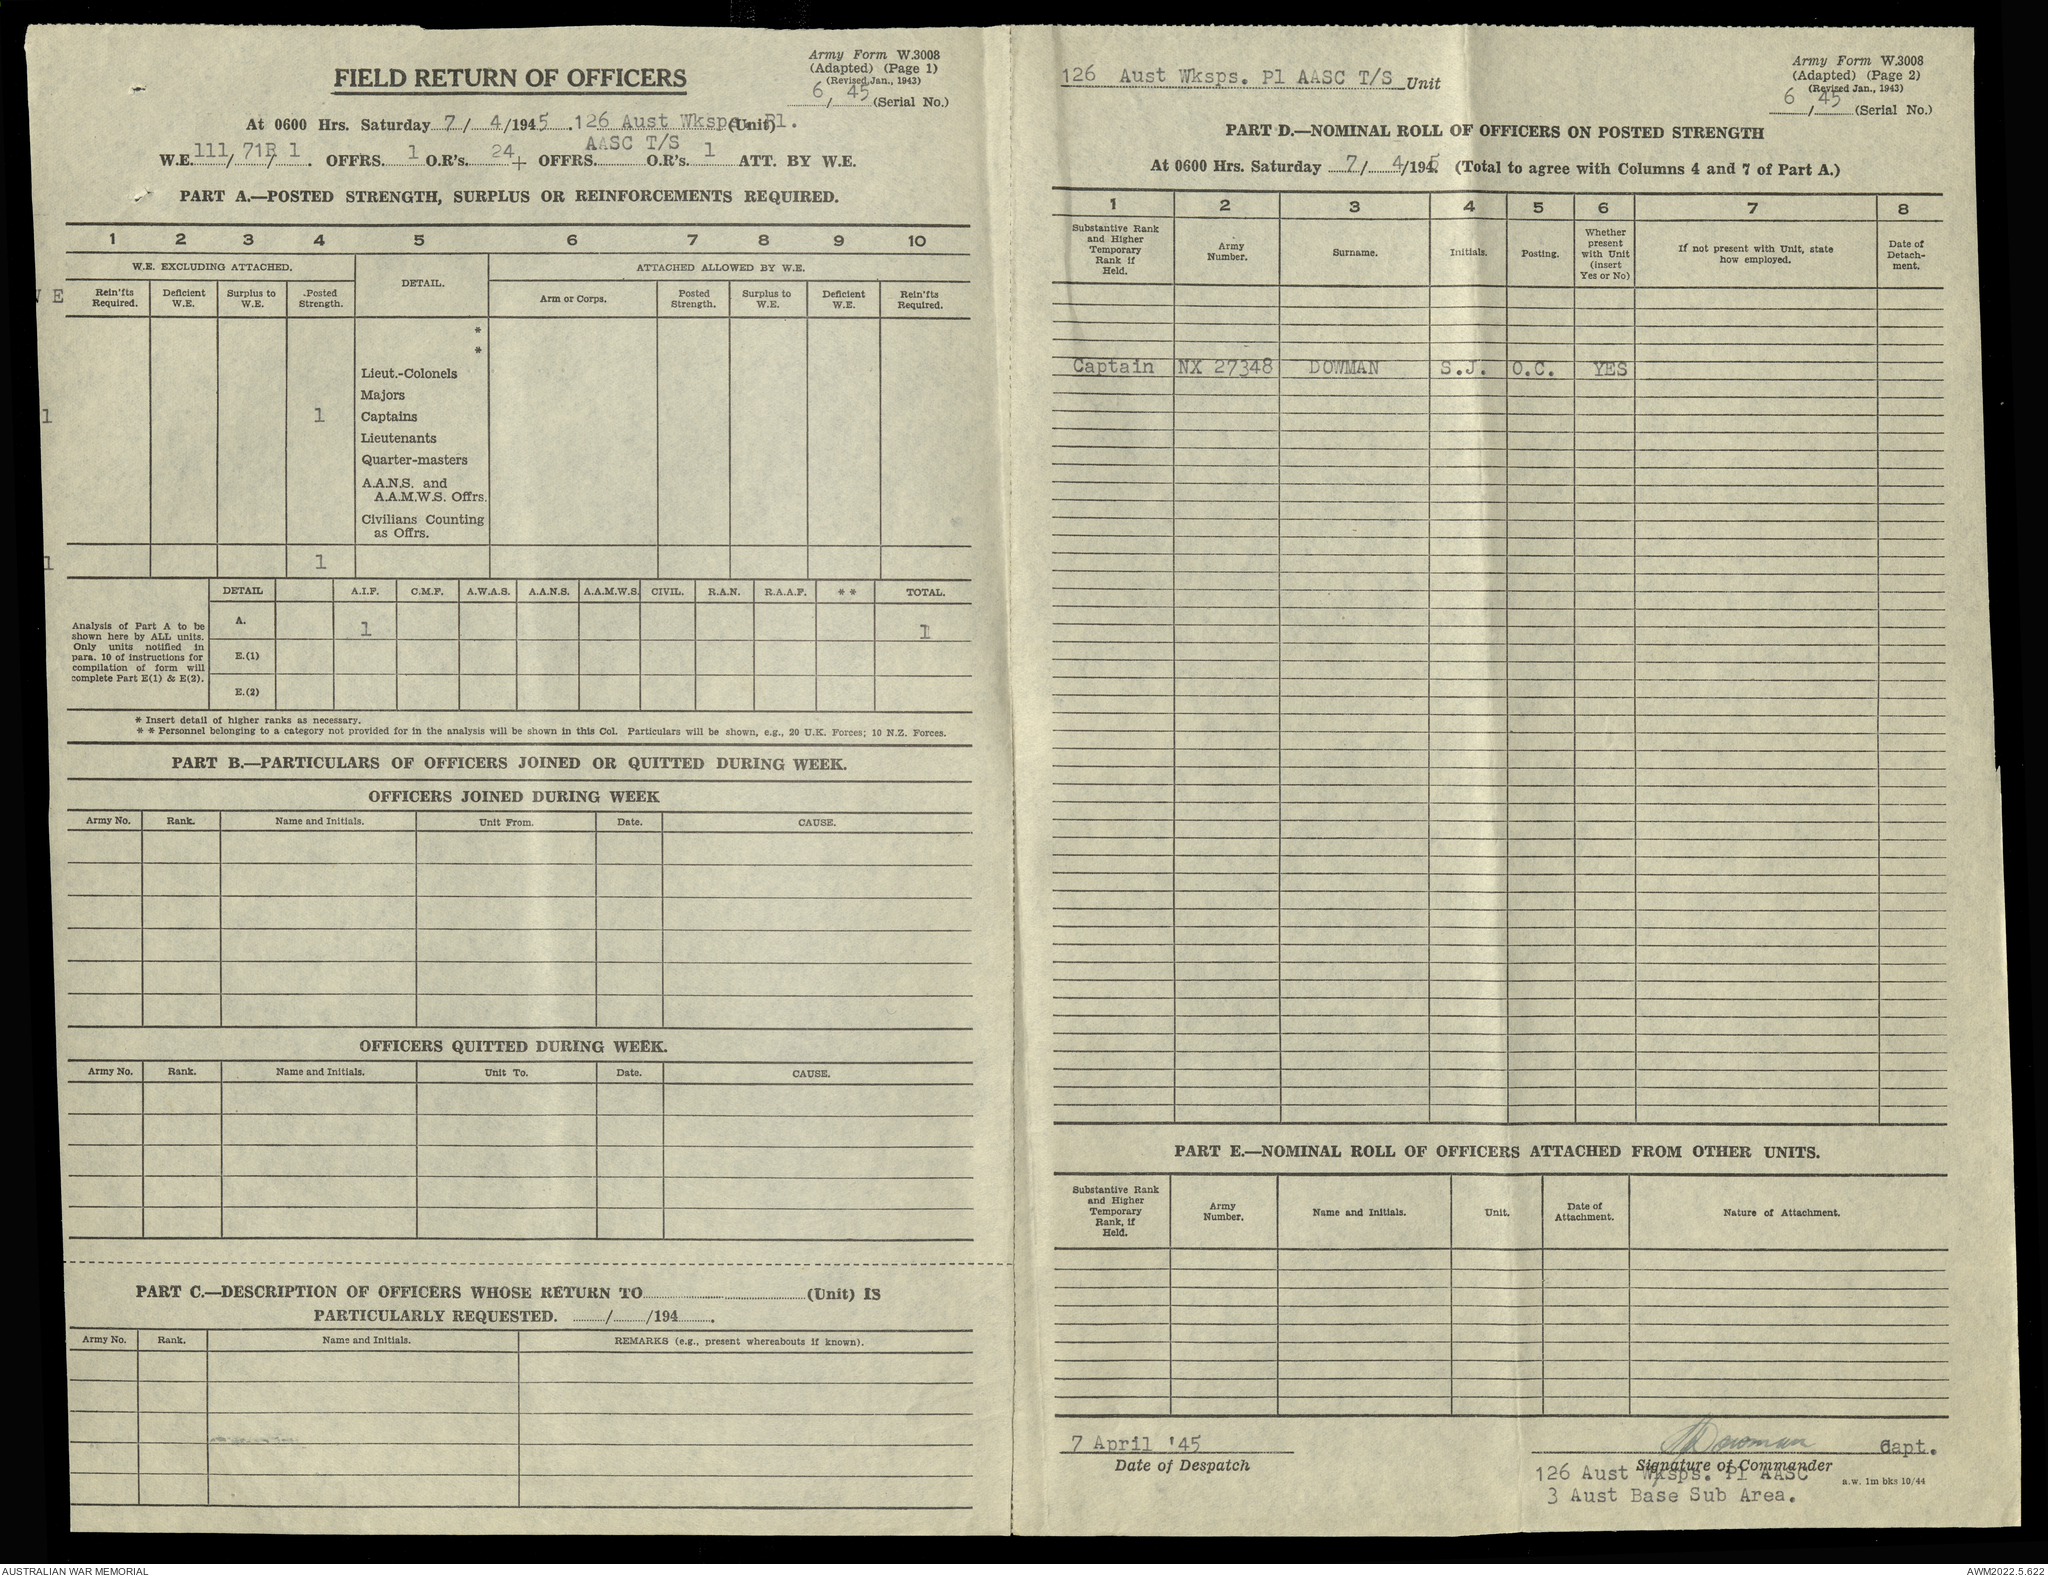 Army Form W.3008
(Adapted) (Page 1)
(Revised Jan., 1943)
6/45 (Serial No.)
FIELD RETURN OF OFFICERS
At 0600 Hrs. Saturday 7/4/1945. 126 Aust Wksps. Pl. (Unit)
AASC T/S
W.E. 111/71R/1. OFFRS. 1 O.R's. 24+ OFFRS. O.R's. 1 ATT. BY W.E.
PART A.—POSTED STRENGTH, SURPLUS OR REINFORCEMENTS REQUIRED.
1 2 3 4 5 6 7 8 9 10
W.E. EXCLUDING ATTACHED. DETAIL. ATTACHED ALLOWED BY W.E.
W E
Rein'fts Required. Deficient W.E. Surplus to W.E. Posted Strength. Arm or Corps. Posted Strength. Surplus to W.E. Deficient W.E. Rein'fts Required.
*
*
Lieut.-Colonels
Majors
1 1 Captains
Lieutenants
Quarter-masters
A.A.N.S. and
A.A.M.W.S. Offrs.
Civilians Counting
as Offrs.
1 1
DETAIL A.I.F. C.M.F. A.W.A.S. A.A.N.S. A.A.M.W.S. CIVIL. R.A.N. R.A.A.F. ** TOTAL.
Analysis of Part A to be
shown here by ALL units.
Only units notified in
para. 10 of instructions for
compilation of form will
complete Part E(1) & E(2).
A. 1 1
E.(1)
E.(2)
* Insert detail of higher ranks as necessary.
* * Personnel belonging to a category not provided for in the analysis will be shown in this Col. Particulars will be shown, e.g., 20 U.K. Forces; 10 N.Z. Forces.
PART B.—PARTICULARS OF OFFICERS JOINED OR QUITTED DURING WEEK.
OFFICERS JOINED DURING WEEK
Army No. Rank. Name and Initials. Unit From. Date. CAUSE.
OFFICERS QUITTED DURING WEEK.
Army No. Rank. Name and Initials. Unit To. Date. CAUSE.
PART C.—DESCRIPTION OF OFFICERS WHOSE RETURN TO (Unit) IS
PARTICULARLY REQUESTED. / /194 .
Army No. Rank. Name and Initials. REMARKS (e.g., present whereabouts if known).
126 Aust Wksps. Pl AASC T/S Unit
Army Form W.3008
(Adapted) (Page 2)
(Revised Jan., 1943)
6/45 (Serial No.)
PART D.—NOMINAL ROLL OF OFFICERS ON POSTED STRENGTH
At 0600 Hrs. Saturday 7/4/1945 (Total to agree with Columns 4 and 7 of Part A.)
1 2 3 4 5 6 7 8
Substantive Rank and Higher Temporary Rank if Held. Army Number. Surname. Initials. Posting. Whether present with Unit (insert Yes or No) If not present with Unit, state how employed. Date of Detachment.
Captain NX 27348 DOWMAN S.J. O.C. YES
PART E.—NOMINAL ROLL OF OFFICERS ATTACHED FROM OTHER UNITS.
Substantive Rank and Higher Temporary Rank, if Held. Army Number. Name and Initials. Unit. Date of Attachment. Nature of Attachment.
7 April '45 SJDowman Capt.
Date of Despatch Signature of Commander
126 Aust Wksps. Pl AASC a.w. 1m bks 10/44
3 Aust Base Sub Area.
AUSTRALIAN WAR MEMORIAL AWM2022.5.622